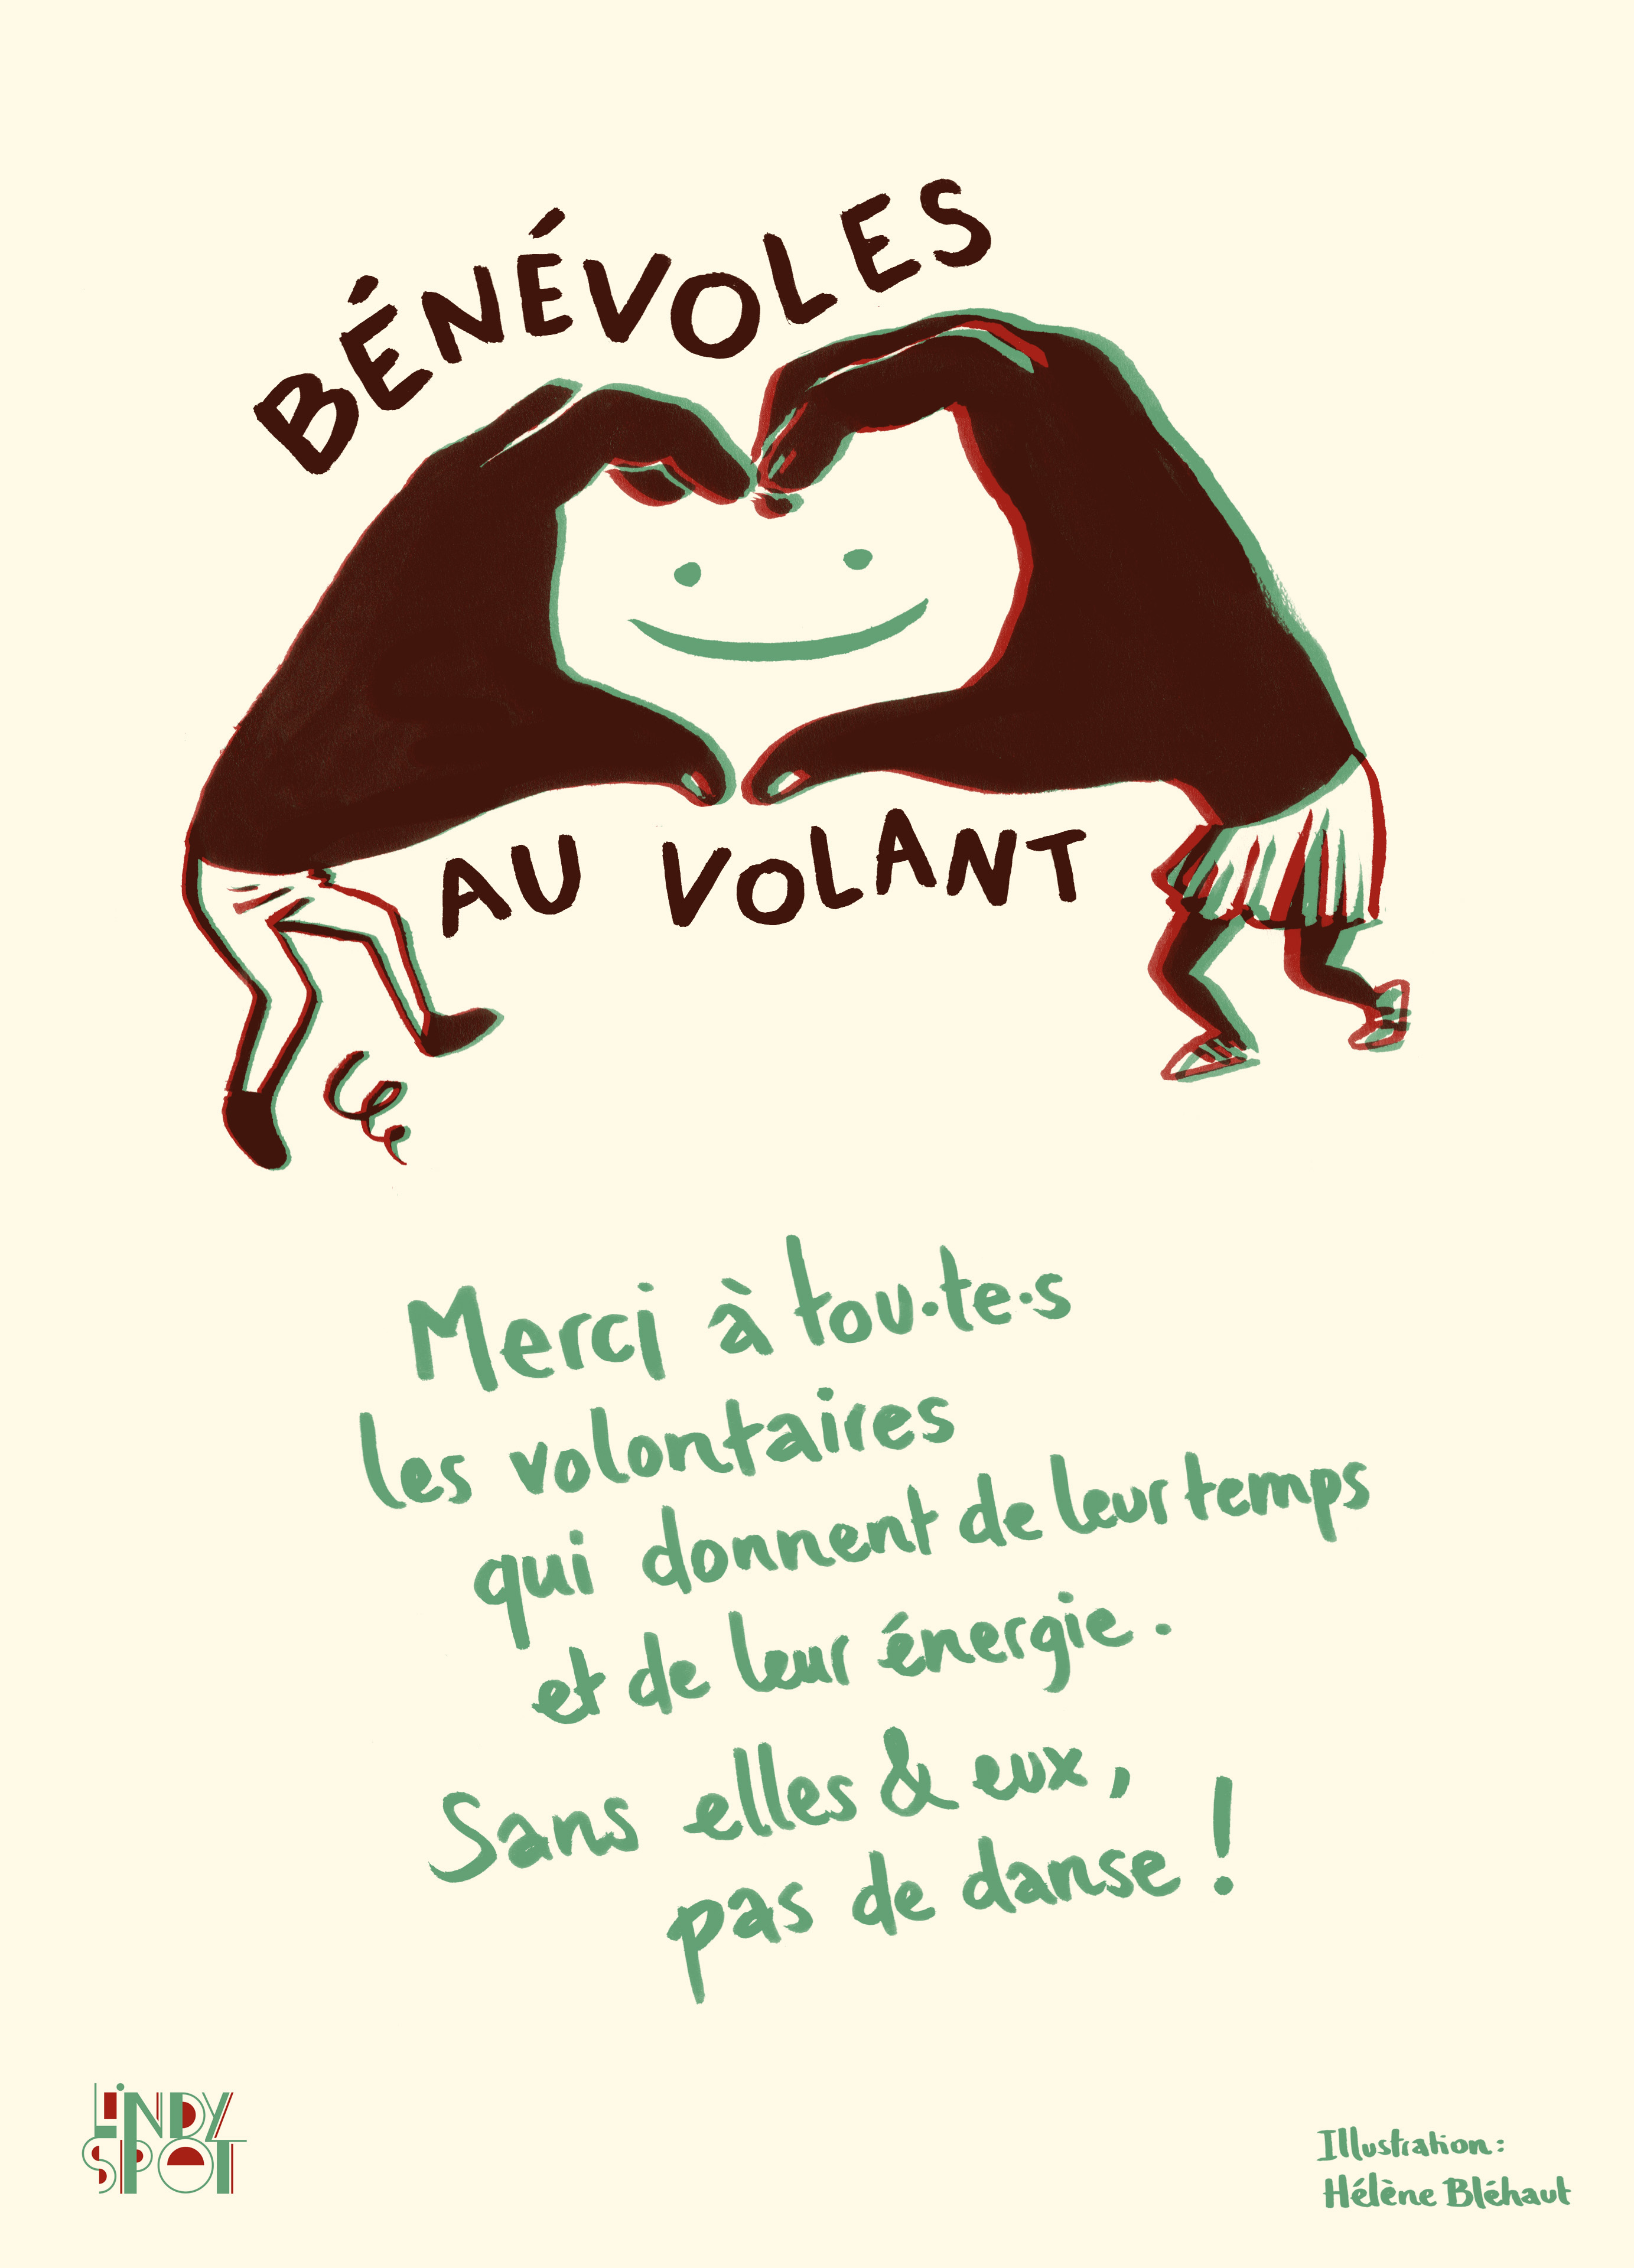 BÉNÉVOLES
AU VOLANT
Merci à tou·te·s
les volontaires
qui donnent de leur temps
et de leur énergie.
Sans elles & eux,
pas de danse !
LiNDY
SPOT
Illustration :
Hélène Bléhaut